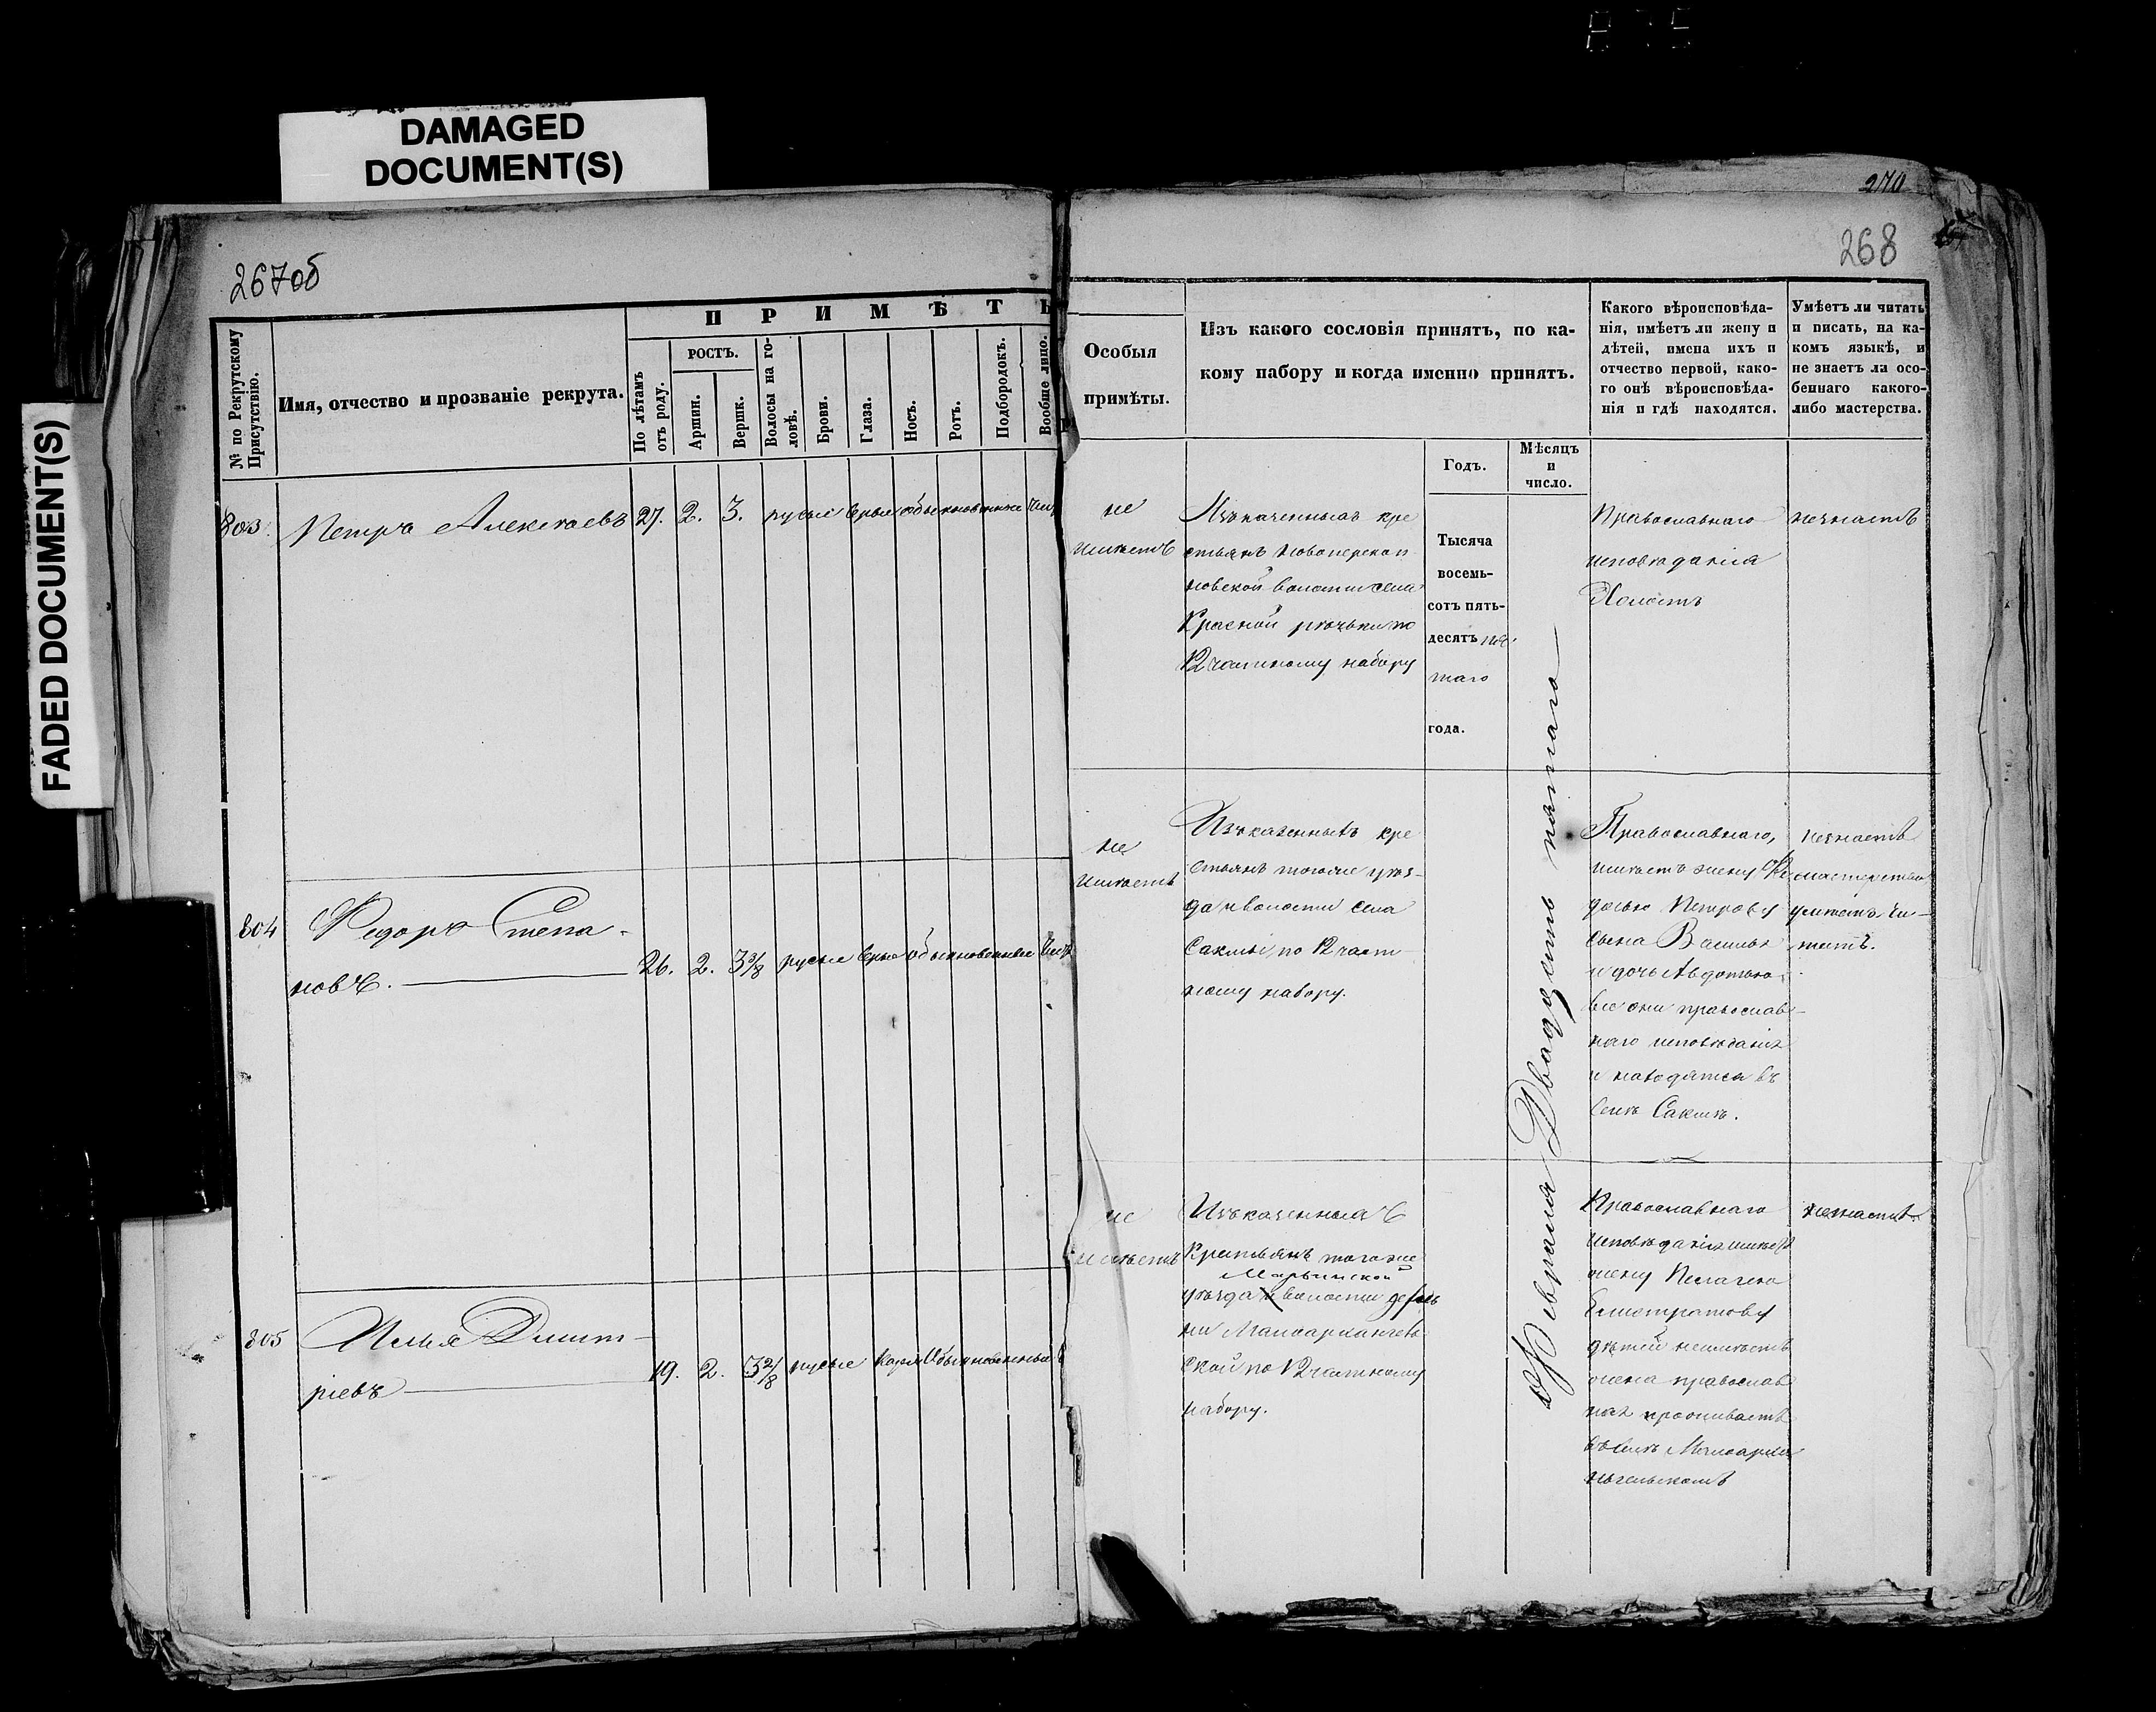 DAMAGED
DOCUMENT(S)
FADED DOCUMENT(S)
270
267об
268
№ по Рекрутскому
Присутствію.
Имя, отчество и прозваніе рекрута.
ПРИМѢТЫ
По лѣтамъ
отъ роду.
РОСТЪ.
Аршин.
Вершк.
Волосы на го-
ловѣ.
Брови.
Глаза.
Носъ.
Ротъ.
Подбородокъ.
Вообще лицо.
Особыя
примѣты.
Изъ какого сословія принятъ, по ка-
кому набору и когда именно принятъ.
Годъ.
Мѣсяцъ
и
число.
Какого вѣроисповѣда-
нія, имѣетъ ли жену и
дѣтей, имена ихъ и
отчество первой, како-
го онѣ вѣроисповѣда-
нія и гдѣ находятся.
Умѣетъ ли читать
и писать, на ка-
комъ языкѣ, и
не знаетъ ли осо-
беннаго какого-
либо мастерства.
803.
Петръ Алексѣевъ
27. 2. 3. русые сѣрые обыкновенные
не
имѣетъ
Изъ казенныхъ кре
стьянъ
новской волости села
Красной рѣчьки по
12 частному набору
Тысяча
восемь-
сотъ пять-
десятъ
таго
года.
Февраля Двадцать пятаго
Православнаго
исповѣданія
Холостъ
незнаетъ
804
Федоръ Степа-
новъ.
26. 2. 3 3/8 русые сѣрые обыкновенные
не
имѣетъ
Изъ казенныхъ кре
стьянъ тогоже уѣз-
да и волости села
Саклы, по 12 част
ному набору.
Православнаго,
имѣетъ жену Фе
досью Петрову
сына Василья
и дочь Авдотью
все они православ-
наго исповѣданія
и находятся въ
селѣ Саклѣ.
незнаетъ
мастерства
умѣетъ чи-
тать.
805
Илья Димит-
ріевъ
19. 2. 3 2/8 русые каріе обыкновенные
не
имѣетъ
Изъ казенныхъ
Крестьянъ тогоже
Марьинской
уѣзда волости дерев
ни Малоархангель
ской по 12 частному
набору.
Православнаго
исповѣданія имѣетъ
жену Пелагею
дѣтей неимѣетъ
жена православ
ная проживаетъ
въ селѣ Малоархан
гельскомъ
незнаетъ.